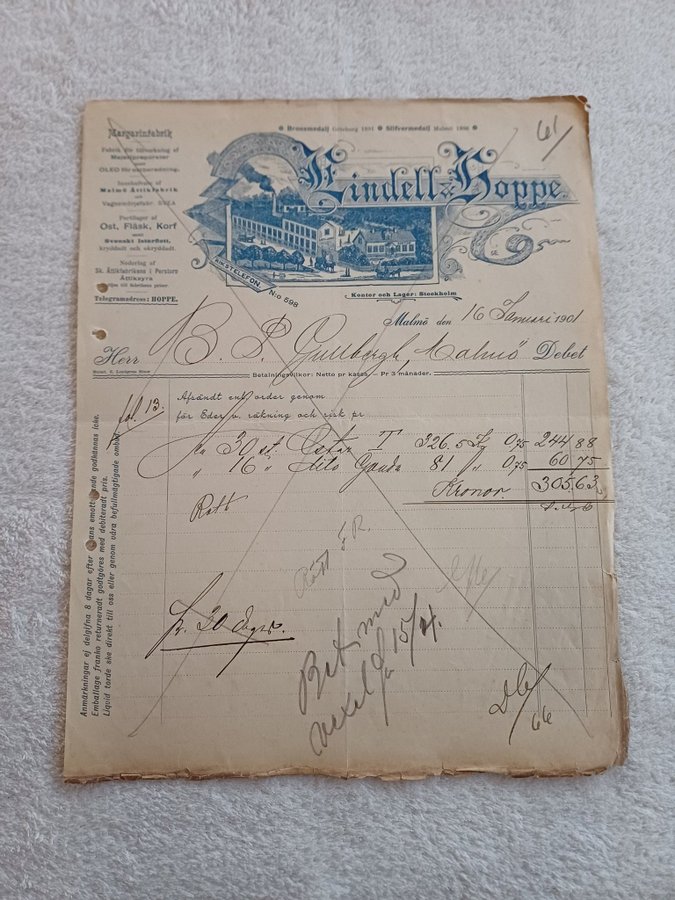 Bronsmedalj Göteborg 1891 Silfvermedalj Malmö 1896
61/
Lindell & Hoppe.
Margarinfabrik
Fabrik för tillverkning af
Mejeripreparater
OLEO för
Innehafvare af
Malmö Ättikfabrik
och
Vagnsmörjefabr. SVEA
Partilager af
Ost, Fläsk, Korf
samt
Svenskt Isterflott,
kryddadt och okryddadt.
Nederlag af
Sk. Ättikfabrikens i Perstorp
Ättiksyra
till fabrikens priser
Telegramadress: HOPPE.
RIKSTELEFON N:o 598
Kontor och Lager: Stockholm
Malmö den 16 Januari 1901
Herr B. P. Gullbergh, Malmö Debet
Betalningsvilkor: Netto pr kassa. Pr 3 månader.
fol. 13.
Afsändt enl. order genom
för Eder v. räkning och risk pr
30 st. Ostar T 326.5 Kg 0,75 244 88
" 16 " dito Gouda 81 " 0,75 60 75
Kronor 305.63
Rätt
Rätt F. R.
pr. 20 dagar.
Bet. med
vexel 15/4.
66
Anmärkningar ej delgifna 8 dagar efter varans emottagande godkännas icke.
Emballage franko returneradt godtgöres med debiteradt pris.
Liquid torde ske direkt till oss eller genom våra befullmägtigade ombud.